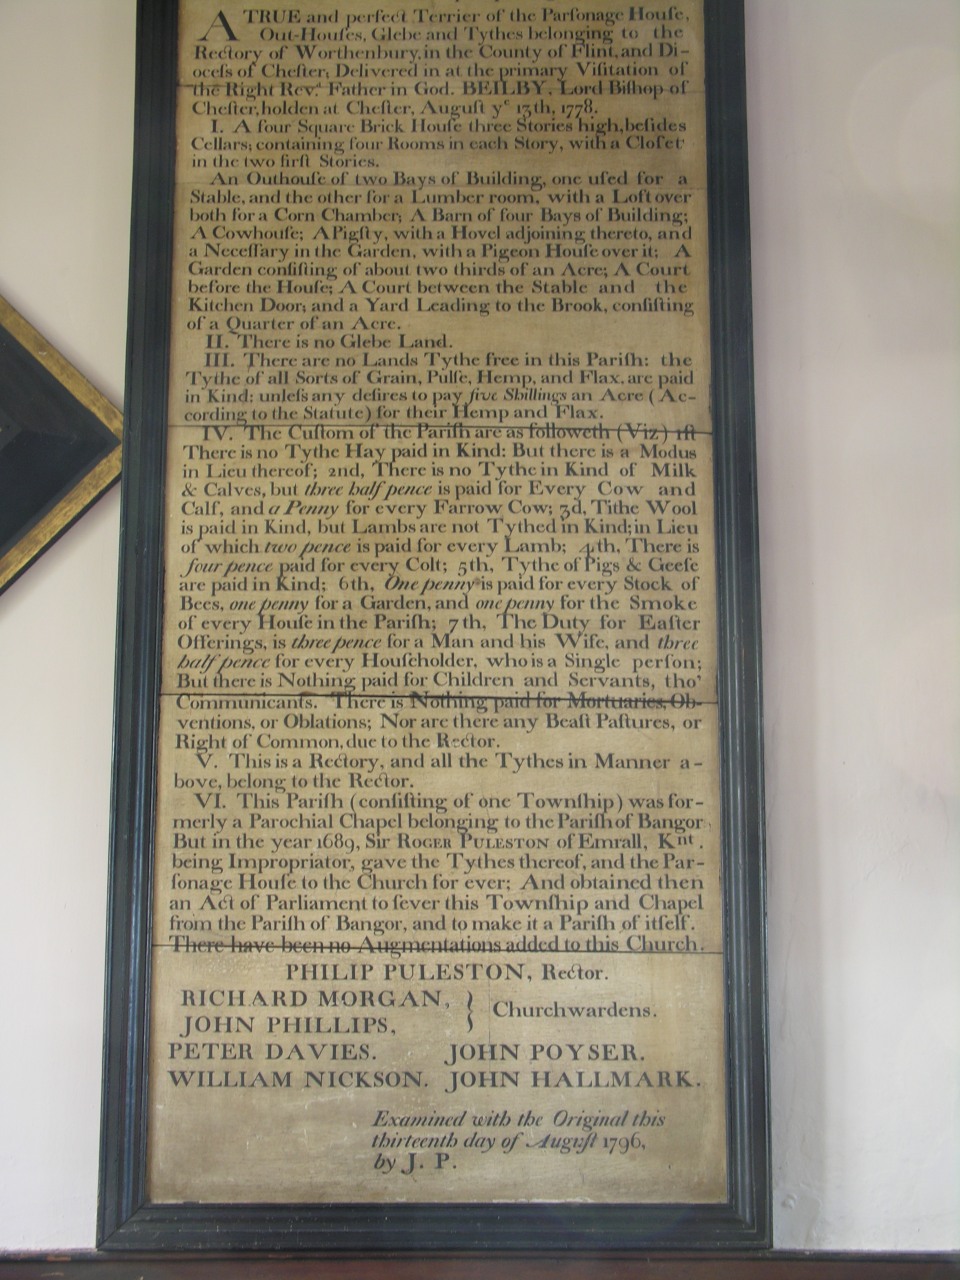 A TRUE and perfect Terrier of the Parſonage Houſe,
Out-Houſes, Glebe and Tythes belonging to the
Rectory of Worthenbury, in the County of Flint, and Di-
oceſs of Cheſter; Delivered in at the primary Viſitation of
the Right Revd. Father in God. BEILBY, Lord Biſhop of
Cheſter, holden at Cheſter, Auguſt ye 13th, 1778.
I. A four Square Brick Houſe three Stories high, beſides
Cellars; containing four Rooms in each Story, with a Cloſet
in the two firſt Stories.
An Outhouſe of two Bays of Building, one uſed for a
Stable, and the other for a Lumber room, with a Loft over
both for a Corn Chamber; A Barn of four Bays of Building;
A Cowhouſe; A Pigſty, with a Hovel adjoining thereto, and
a Neceſſary in the Garden, with a Pigeon Houſe over it; A
Garden conſiſting of about two thirds of an Acre; A Court
before the Houſe; A Court between the Stable and the
Kitchen Door; and a Yard Leading to the Brook, conſiſting
of a Quarter of an Acre.
II. There is no Glebe Land.
III. There are no Lands Tythe free in this Pariſh: the
Tythe of all Sorts of Grain, Pulſe, Hemp, and Flax, are paid
in Kind: unleſs any deſires to pay five Shillings an Acre (Ac-
cording to the Statute) for their Hemp and Flax.
IV. The Cuſtom of the Pariſh are as followeth (Viz) 1ſt
There is no Tythe Hay paid in Kind: But there is a Modus
in Lieu thereof; 2nd, There is no Tythe in Kind of Milk
& Calves, but three half pence is paid for Every Cow and
Calf, and a Penny for every Farrow Cow; 3d, Tithe Wool
is paid in Kind, but Lambs are not Tythed in Kind; in Lieu
of which two pence is paid for every Lamb; 4th, There is
four pence paid for every Colt; 5th, Tythe of Pigs & Geeſe
are paid in Kind; 6th, One penny is paid for every Stock of
Bees, one penny for a Garden, and one penny for the Smoke
of every Houſe in the Pariſh; 7th, The Duty for Eaſter
Offerings, is three pence for a Man and his Wife, and three
half pence for every Houſeholder, who is a Single perſon;
But there is Nothing paid for Children and Servants, tho'
Communicants. There is Nothing paid for Mortuaries, Ob-
ventions, or Oblations; Nor are there any Beaſt Paſtures, or
Right of Common, due to the Rector.
V. This is a Rectory, and all the Tythes in Manner a-
bove, belong to the Rector.
VI. This Pariſh (conſiſting of one Townſhip) was for-
merly a Parochial Chapel belonging to the Pariſh of Bangor.
But in the year 1689, Sir ROGER PULESTON of Emrall, Knt.
being Impropriator, gave the Tythes thereof, and the Par-
ſonage Houſe to the Church for ever; And obtained then
an Act of Parliament to ſever this Townſhip and Chapel
from the Pariſh of Bangor, and to make it a Pariſh of itſelf.
There have been no Augmentations added to this Church.
PHILIP PULESTON, Rector.
RICHARD MORGAN, } Churchwardens.
JOHN PHILLIPS,
PETER DAVIES. JOHN POYSER.
WILLIAM NICKSON. JOHN HALLMARK.
Examined with the Original this
thirteenth day of Auguſt 1796,
by J. P.